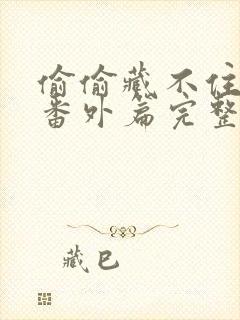 偷偷藏不住
番外篇完整
藏巴